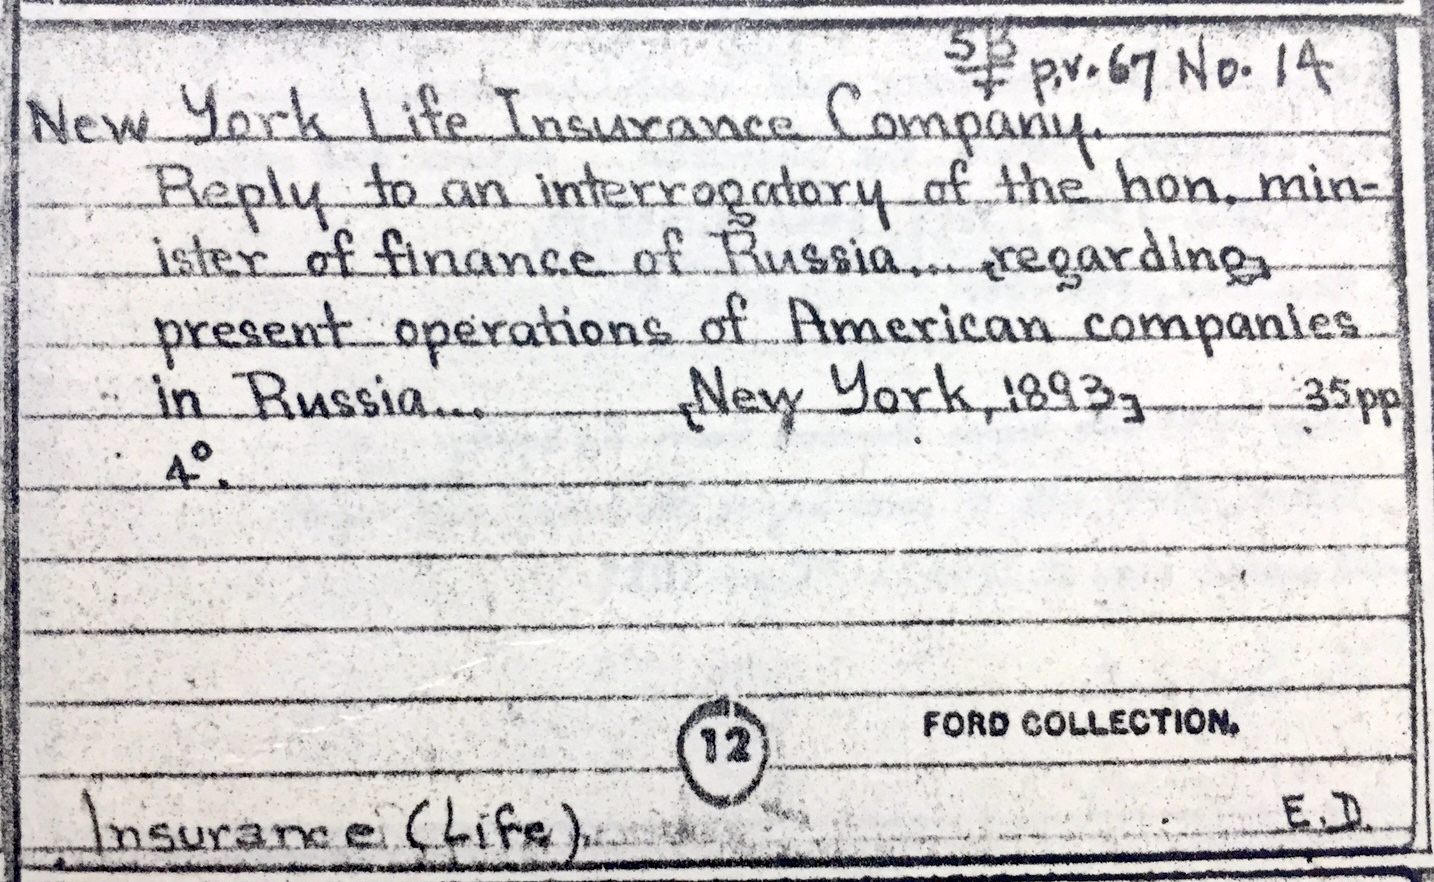 SB p.v. 67 No. 14
New York Life Insurance Company.
Reply to an interrogatory of the hon. min-
ister of finance of Russia... [regarding]
present operations of American companies
in Russia... [New York, 1893] 35 pp
4º.
12
FORD COLLECTION.
Insurance (Life). E.D.